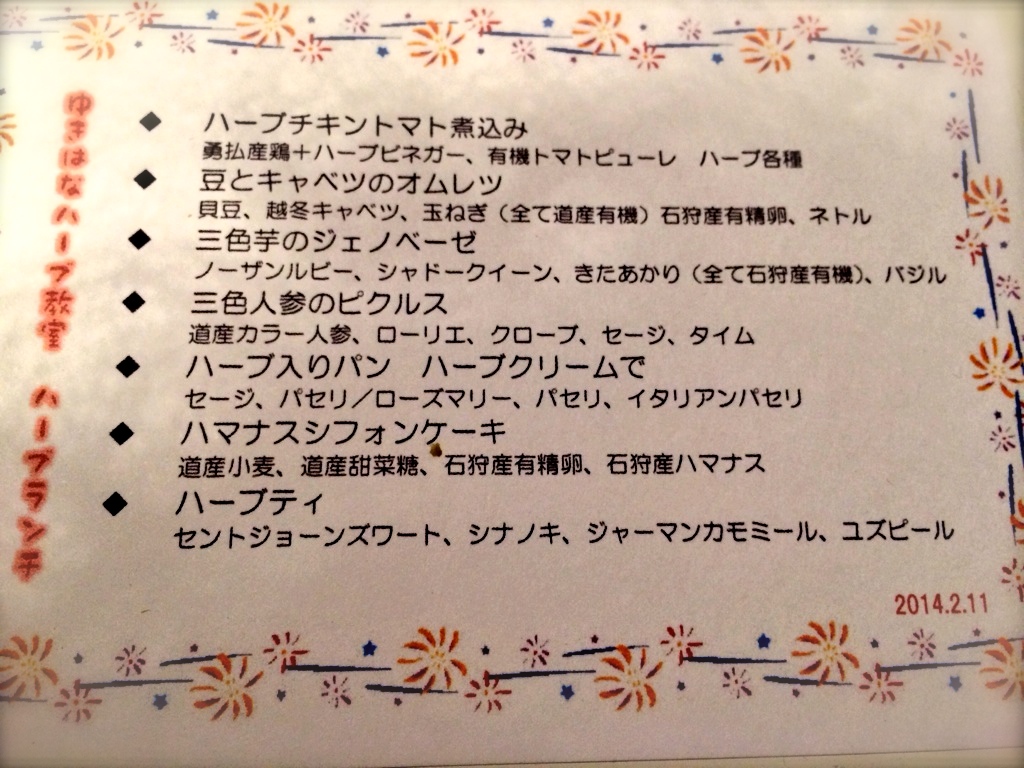 ゆきはなハーブ教室 ハーブランチ
◆ ハーブチキントマト煮込み
勇払産鶏＋ハーブビネガー、有機トマトピューレ　ハーブ各種
◆ 豆とキャベツのオムレツ
貝豆、越冬キャベツ、玉ねぎ（全て道産有機）石狩産有精卵、ネトル
◆ 三色芋のジェノベーゼ
ノーザンルビー、シャドークイーン、きたあかり（全て石狩産有機）、バジル
◆ 三色人参のピクルス
道産カラー人参、ローリエ、クローブ、セージ、タイム
◆ ハーブ入りパン　ハーブクリームで
セージ、パセリ／ローズマリー、パセリ、イタリアンパセリ
◆ ハマナスシフォンケーキ
道産小麦、道産甜菜糖、石狩産有精卵、石狩産ハマナス
◆ ハーブティ
セントジョーンズワート、シナノキ、ジャーマンカモミール、ユズピール
2014.2.11